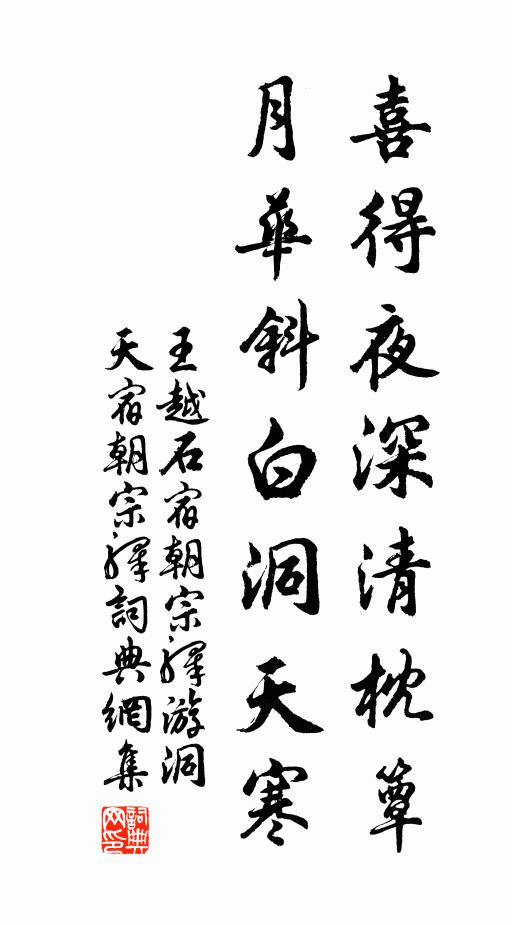 喜得夜深清枕簟
月華斜白洞天寒
王越石宿朝宗驛游洞
天宿朝宗驛詞典網集
詞典網印